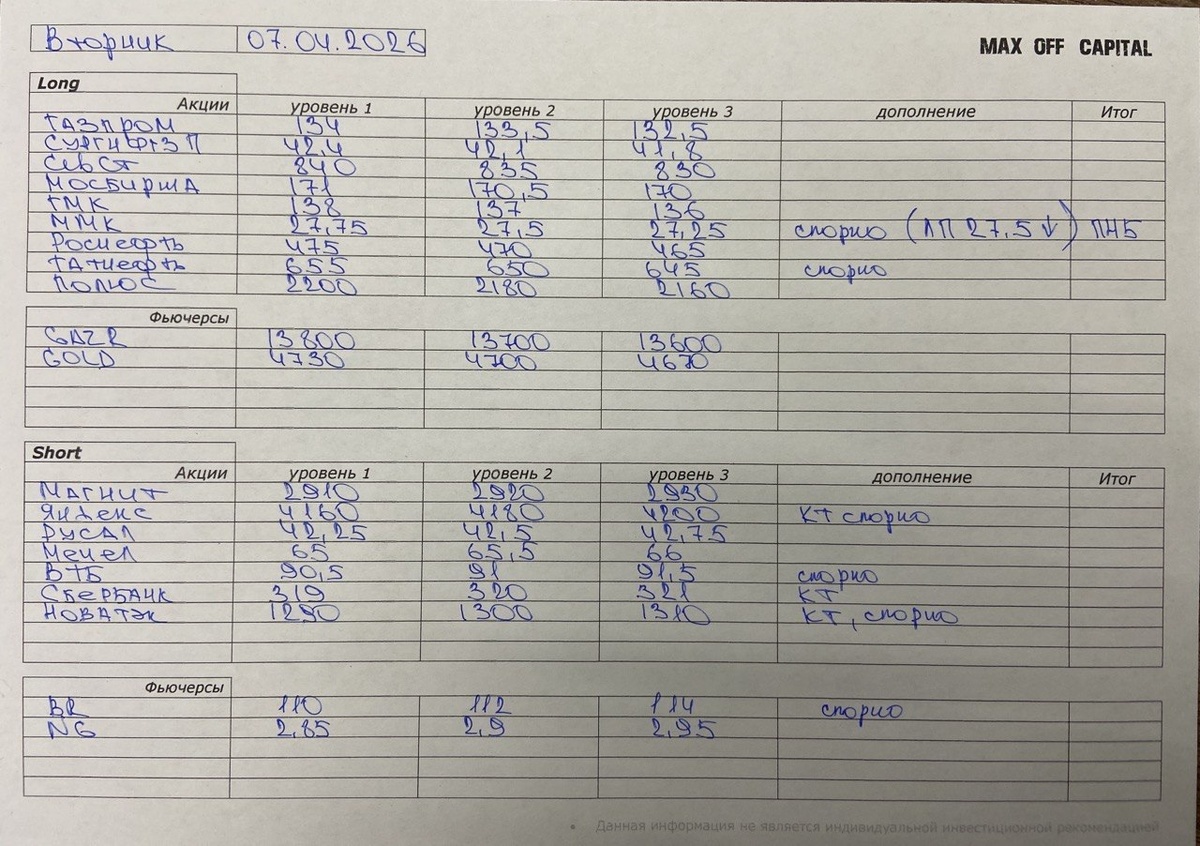 Вторник 07.04.2026
MAX OFF CAPITAL
Long
Акции уровень 1 уровень 2 уровень 3 дополнение Итог
ГАЗПРОМ 134 133,5 132,5
СУРГНФТЗ П 42,4 42,1 41,8
СевСт 840 835 830
МОСБИРЖА 171 170,5 170
ГМК 138 137 136
ММК 27,75 27,5 27,25 спорно (ЛП 27,5 ↓) ПНБ
Роснефть 475 470 465
ТАТнефть 655 650 645 спорно
ПОЛЮС 2200 2180 2160
Фьючерсы
GAZR 13800 13700 13600
GOLD 4730 4700 4670
Short
Акции уровень 1 уровень 2 уровень 3 дополнение Итог
МАГНИТ 2910 2920 2930
Яндекс 4160 4180 4200 КТ спорно
РУСАЛ 42,25 42,5 42,75
Мечел 65 65,5 66
ВТБ 90,5 91 91,5 спорно
СБЕРБАНК 319 320 321 КТ
НОВАТЭК 1290 1300 1310 КТ, спорно
Фьючерсы
BR 110 112 114 спорно
NG 2,85 2,9 2,95
• Данная информация не является индивидуальной инвестиционной рекомендацией